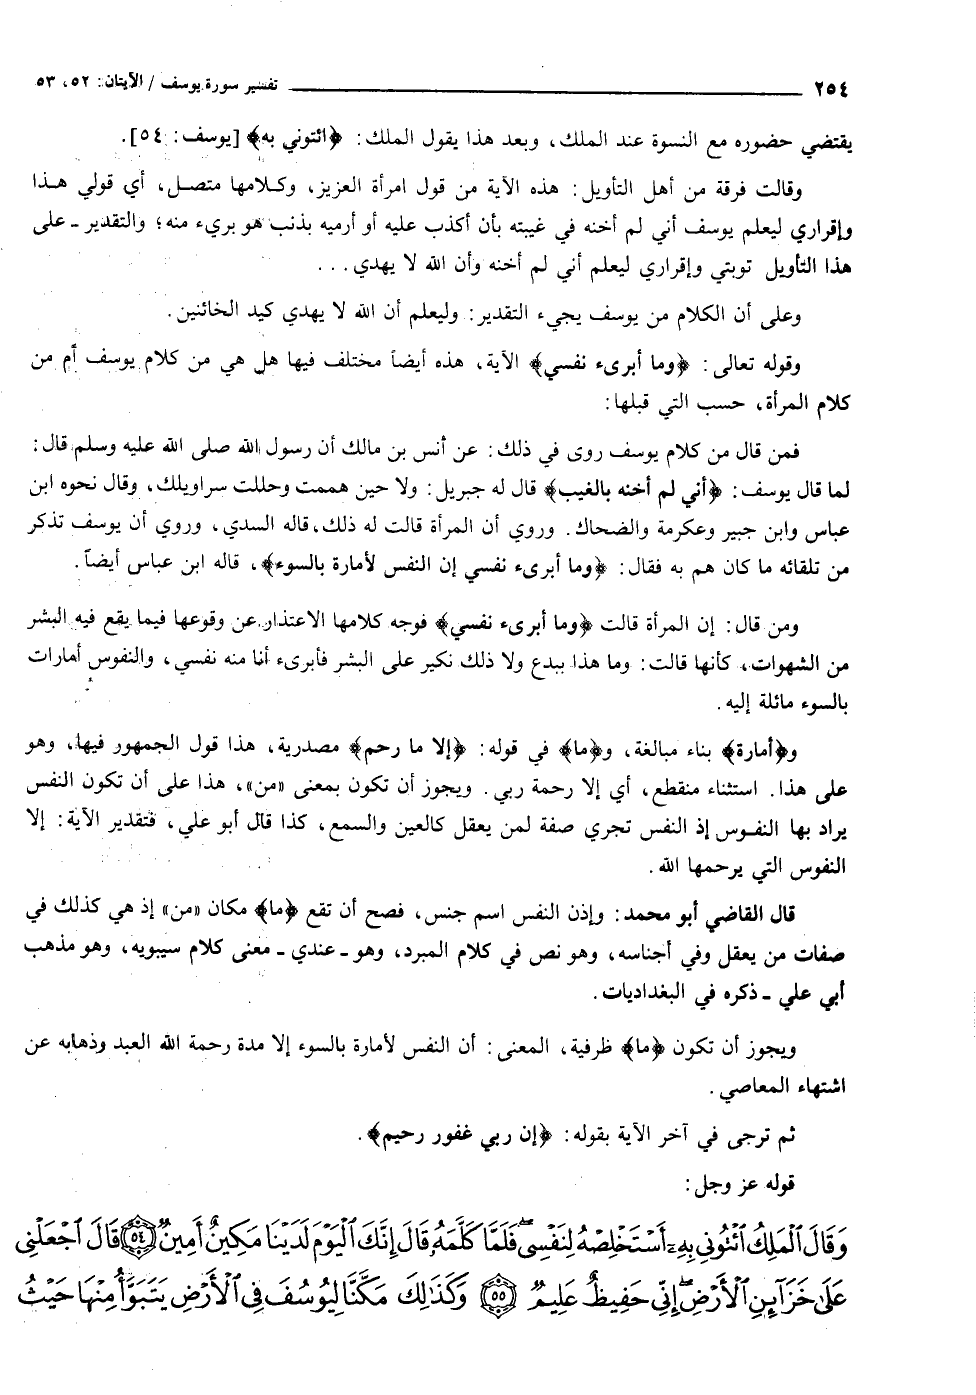 ٢٥٤ تفسير سورة يوسف / الآيتان: ٥٢، ٥٣
يقتضي حضوره مع النسوة عند الملك، وبعد هذا يقول الملك: ﴿ائتوني به﴾ [يوسف: ٥٤].
وقالت فرقة من أهل التأويل: هذه الآية من قول امرأة العزيز، وكلامها متصل، أي قولي هذا
وإقراري ليعلم يوسف أني لم أخنه في غيبته بأن أكذب عليه أو أرميه بذنب هو بريء منه؛ والتقدير ـ على
هذا التأويل توبتي وإقراري ليعلم أني لم أخنه وأن الله لا يهدي...
وعلى أن الكلام من يوسف يجيء التقدير: وليعلم أن الله لا يهدي كيد الخائنين.
وقوله تعالى: ﴿وما أبرىء نفسي﴾ الآية، هذه أيضاً مختلف فيها هل هي من كلام يوسف أم من
كلام المرأة، حسب التي قبلها:
فمن قال من كلام يوسف روى في ذلك: عن أنس بن مالك أن رسول الله صلى الله عليه وسلم قال:
لما قال يوسف: ﴿أني لم أخنه بالغيب﴾ قال له جبريل: ولا حين هممت وحللت سراويلك، وقال نحوه ابن
عباس وابن جبير وعكرمة والضحاك. وروي أن المرأة قالت له ذلك، قاله السدي، وروي أن يوسف تذكر
من تلقائه ما كان هم به فقال: ﴿وما أبرىء نفسي إن النفس لأمارة بالسوء﴾، قاله ابن عباس أيضاً.
ومن قال: إن المرأة قالت ﴿وما أبرىء نفسي﴾ فوجه كلامها الاعتذار عن وقوعها فيما يقع فيه البشر
من الشهوات، كأنها قالت: وما هذا ببدع ولا ذلك نكير على البشر فأبرىء أنا منه نفسي، والنفوس أمارات
بالسوء مائلة إليه.
و﴿أمارة﴾ بناء مبالغة، و﴿ما﴾ في قوله: ﴿إلا ما رحم﴾ مصدرية، هذا قول الجمهور فيها، وهو
على هذا. استثناء منقطع، أي إلا رحمة ربي. ويجوز أن تكون بمعنى «من»، هذا على أن تكون النفس
يراد بها النفوس إذ النفس تجري صفة لمن يعقل كالعين والسمع، كذا قال أبو علي، فتقدير الآية: إلا
النفوس التي يرحمها الله.
قال القاضي أبو محمد: وإذن النفس اسم جنس، فصح أن تقع ﴿ما﴾ مكان «من» إذ هي كذلك في
صفات من يعقل وفي أجناسه، وهو نص في كلام المبرد، وهو ـ عندي ـ معنى كلام سيبويه، وهو مذهب
أبي علي ـ ذكره في البغداديات.
ويجوز أن تكون ﴿ما﴾ ظرفية، المعنى: أن النفس لأمارة بالسوء إلا مدة رحمة الله العبد وذهابه عن
اشتهاء المعاصي.
ثم ترجى في آخر الآية بقوله: ﴿إن ربي غفور رحيم﴾.
قوله عز وجل:
وَقَالَ ٱلْمَلِكُ ٱئْتُونِي بِهِۦٓ أَسْتَخْلِصْهُ لِنَفْسِي ۖ فَلَمَّا كَلَّمَهُۥ قَالَ إِنَّكَ ٱلْيَوْمَ لَدَيْنَا مَكِينٌ أَمِينٌ ﴿٥٤﴾ قَالَ ٱجْعَلْنِي
عَلَىٰ خَزَآئِنِ ٱلْأَرْضِ ۖ إِنِّي حَفِيظٌ عَلِيمٌ ﴿٥٥﴾ وَكَذَٰلِكَ مَكَّنَّا لِيُوسُفَ فِي ٱلْأَرْضِ يَتَبَوَّأُ مِنْهَا حَيْثُ